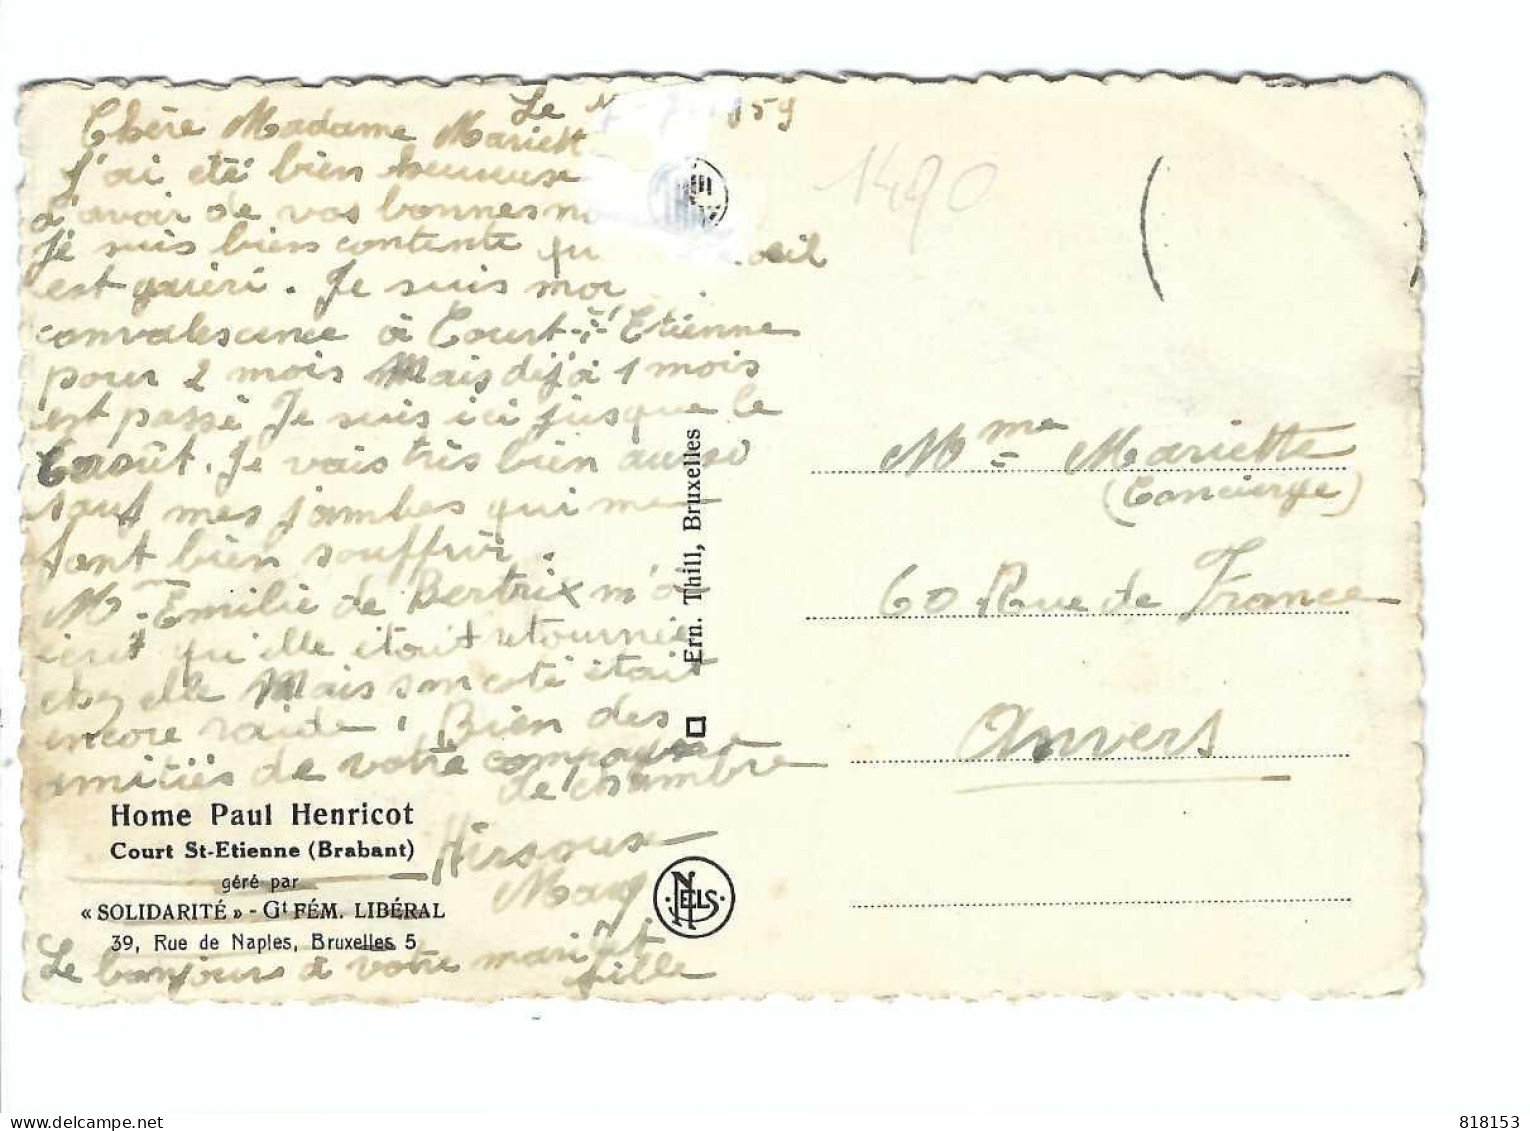 Le 1959
Chère Madame Mariett
J'ai été bien heureuse
d'avoir de vos bonnes no
Je suis bien contente qu oeil
est guéri. Je suis
convalescence à Court-St-Etienne
pour 2 mois Mais déjà 1 mois
est passé Je suis ici jusque le
6 août. Je vais très bien aussi
sauf mes jambes qui me
font bien souffrir.
Mme Emilie de Bertrix m'a
écrit qu'elle était retournée
chez elle Mais son coté était
encore raide. Bien des
amitiés de votre compagne
de chambre
Mary
Le bonjours à votre mari et
fille
Home Paul Henricot
Court St-Etienne (Brabant)
géré par
« SOLIDARITÉ » - Gt FÉM. LIBÉRAL
39, Rue de Naples, Bruxelles 5
Ern. Thill, Bruxelles
NELS
1490
Mme Mariette
(Concierge)
60 Rue de France
Anvers
www.delcampe.net
818153